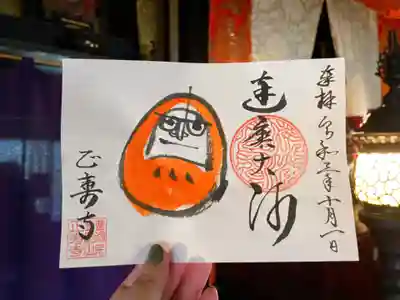 奉拝 令和三年十月一日
達磨大師
正寿寺